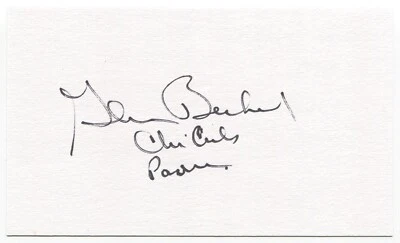 Glenn Beckert
Chi Cubs
Padres